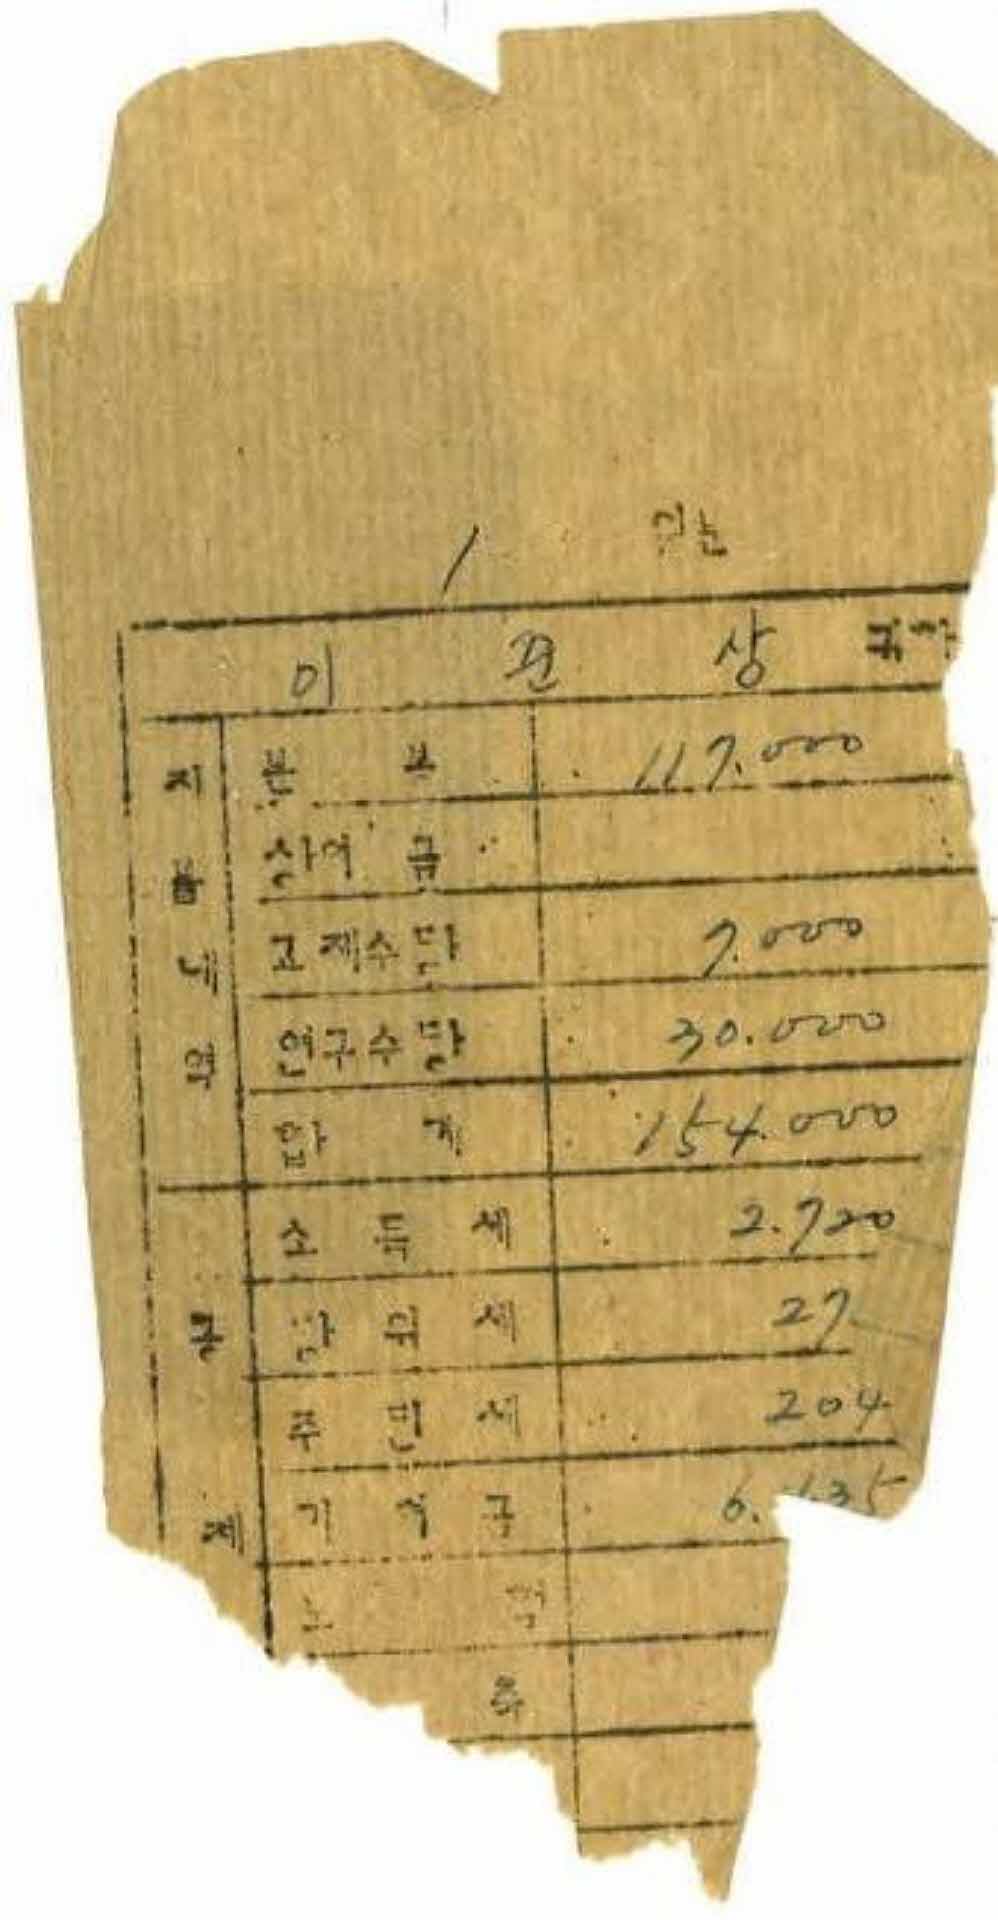 / 월분
이 관 상 귀하
지불내역
본 보 117.000
상여금
교재수당 7.000
연구수당 30.000
합 계 154.000
공제
소 득 세 2.720
방 위 세 27
주 민 세 204
기 여 금 6.135